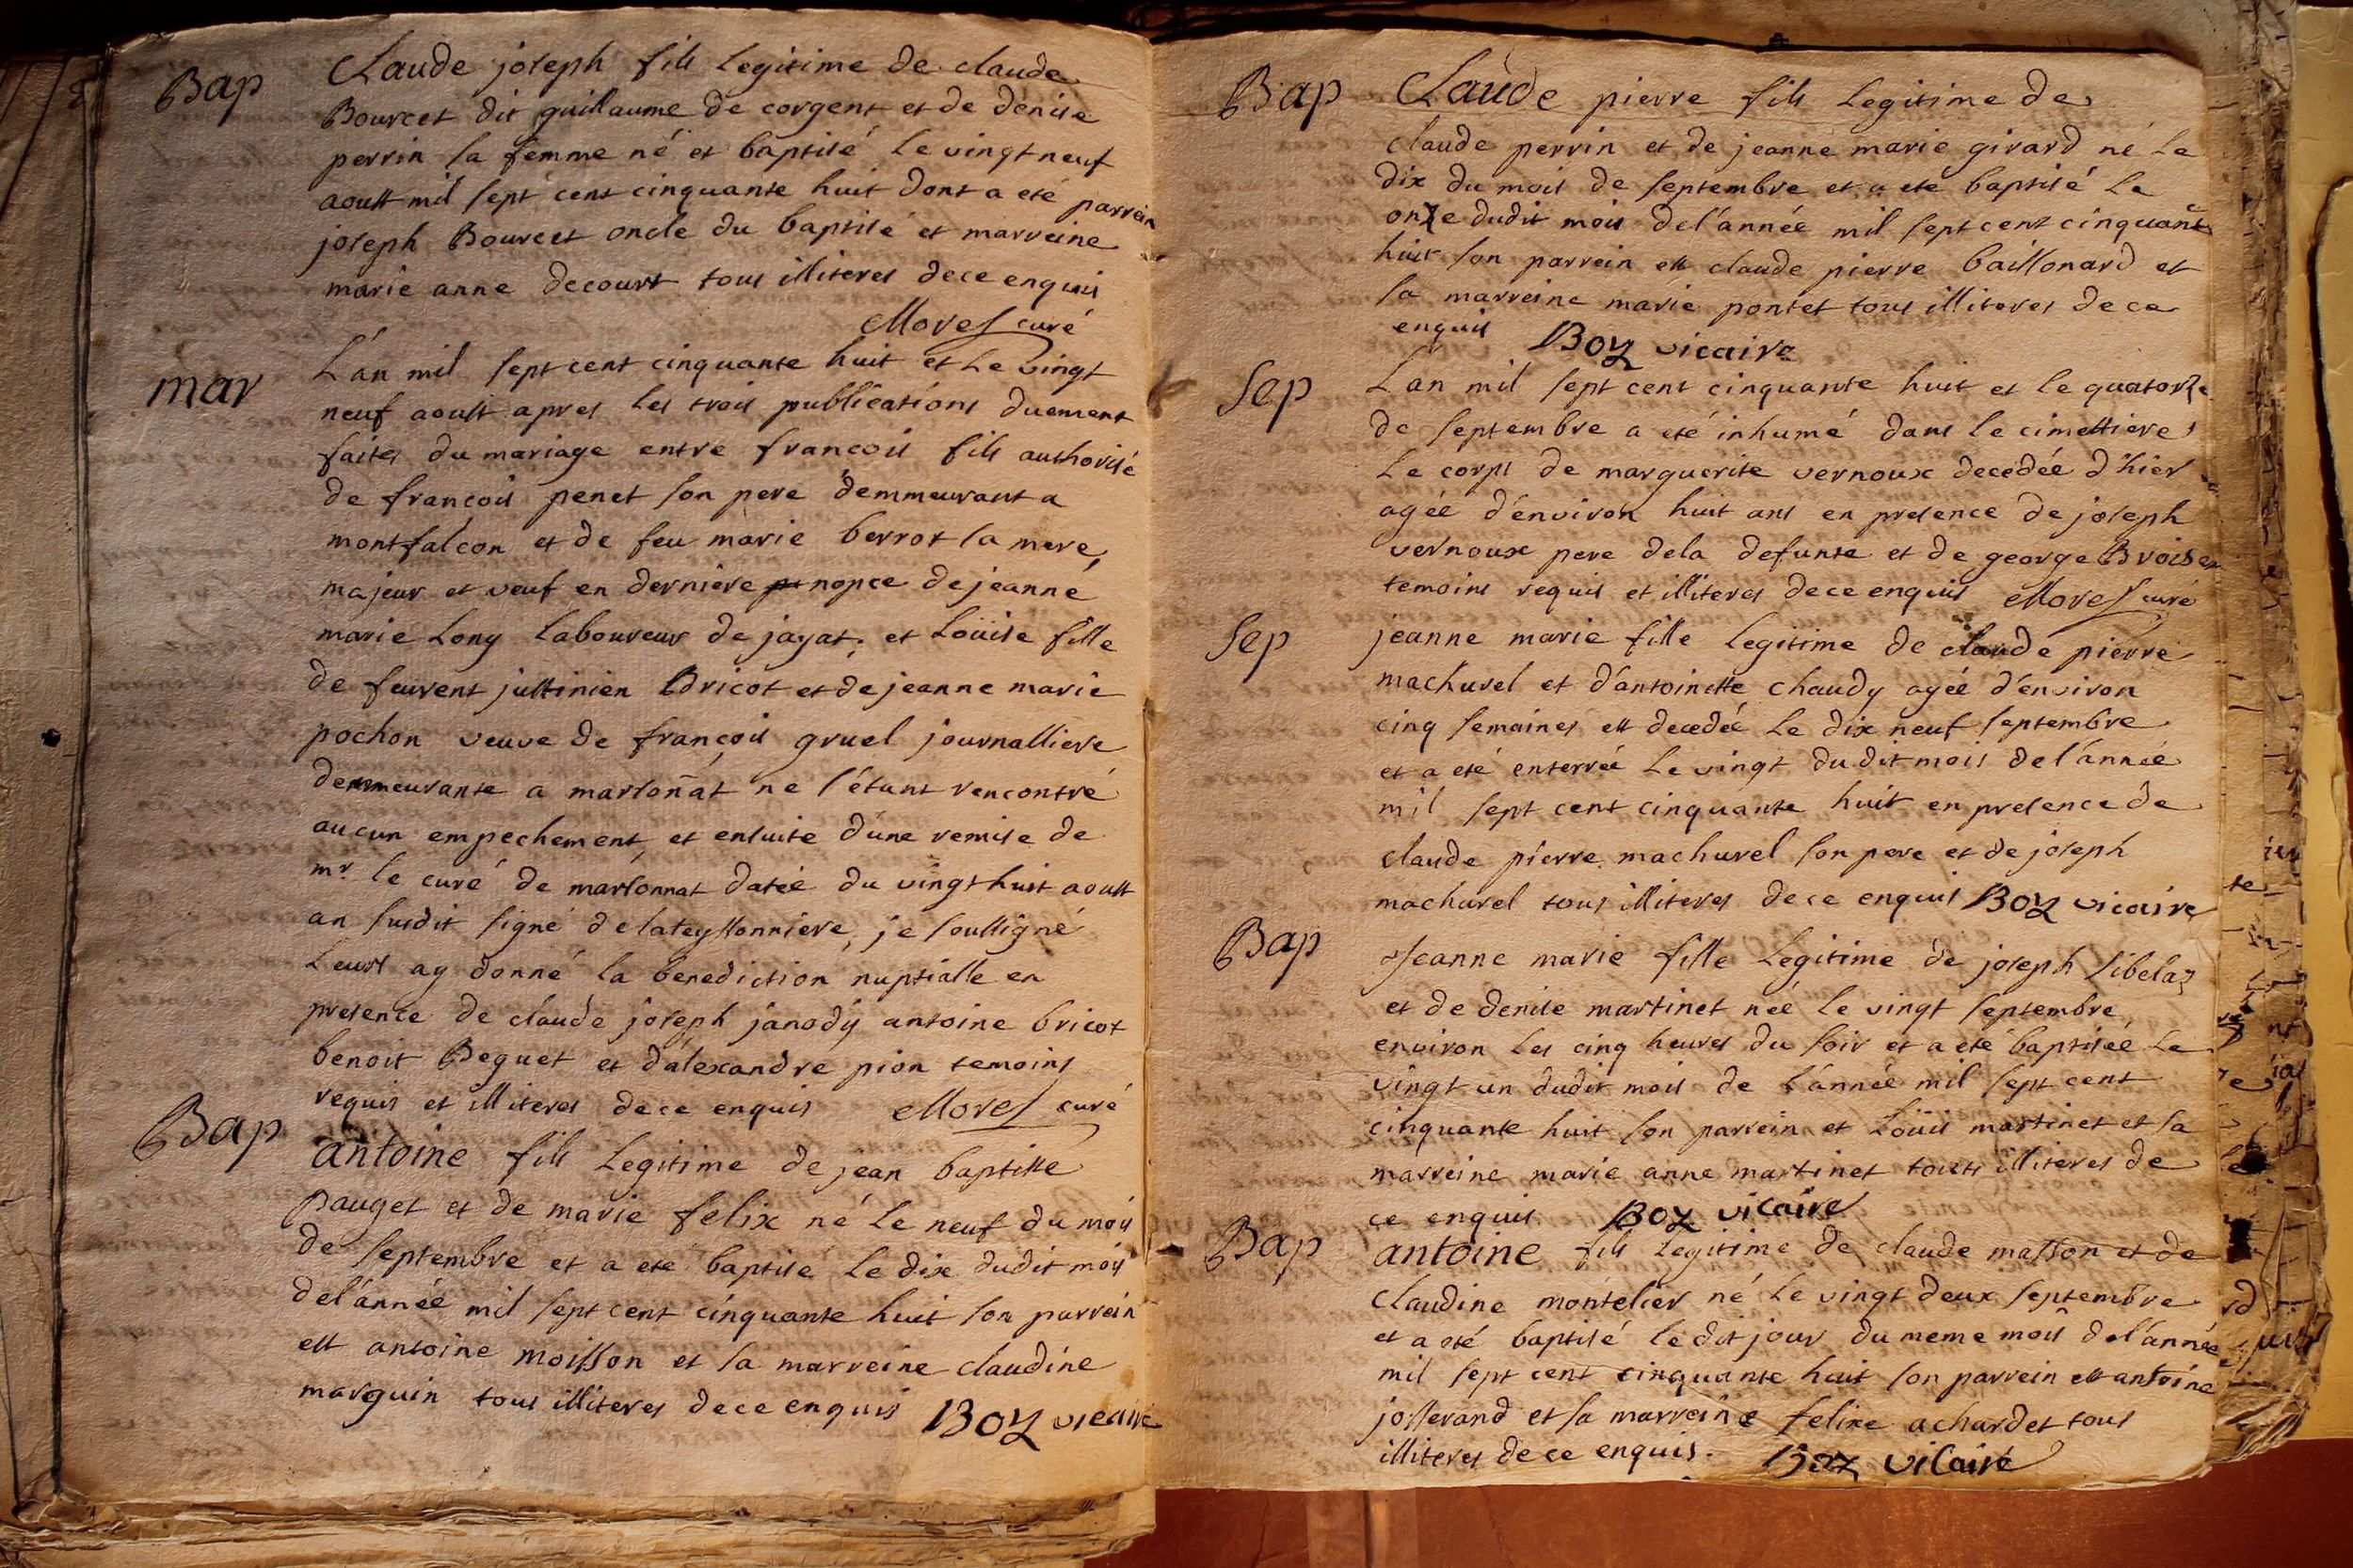 Bap
Claude joseph fils legitime de claude
Bourcet dit guillaume de corgent et de denise
perrin sa femme né et baptisé le vingt neuf
aoust mil sept cent cinquante huit dont a eté parrein
joseph Bourcet oncle du baptisé et marreine
marie anne decourt tous illiteres de ce enquis
Morel curé
mar
L'an mil sept cent cinquante huit et le vingt
neuf aoust apres les trois publications duement
faites du mariage entre francois fils authorisé
de francois penet son pere demmeurant a
montfalcon et de feu marie berrot sa mere,
majeur et veuf en derniere nopce de jeanne
marie Long laboureur de jayat; et Loüise fille
de feu justinien Bricot et de jeanne marie
pochon veuve de françois gruel journalliere
demmeurante a marsonat ne s'étant rencontré
aucun empechement, et ensuite d'une remise de
mr le curé de marsonnat datée du vingt huit aoust
an susdit signé delateyssonniere, je soussigné
Leurs ay donné la benediction nuptialle en
presence de claude joseph janody antoine bricot
benoit Beguet et d'alexandre pion temoins
requis et illiteres de ce enquis Morel curé
Bap
antoine fils legitime de jean baptiste
pauget et de marie felix né le neuf du mois
de septembre et a eté baptisé le dix dudit mois
de l'année mil sept cent cinquante huit son parrein
est antoine moisson et sa marreine claudine
marguin tous illiteres de ce enquis Boy vicaire
Bap
Claude pierre fils legitime de
claude perrin et de jeanne marie girard né le
dix du mois de septembre et a eté baptisé le
onze dudit mois de l'année mil sept cent cinquante
huit son parrein est claude pierre baissonard et
sa marreine marie pontet tous illiteres de ce
enquis Boy vicaire
Sep
L'an mil sept cent cinquante huit et le quatorze
de septembre a eté inhumé dans le cimettiere
le corps de marguerite vernoux decedée d'hier
agée d'environ huit ans en presence de joseph
vernoux pere de la defunte et de george
temoins requis et illiteres de ce enquis Morel curé
Sep
jeanne marie fille legitime de claude pierre
machurel et d'antoinette chaudy agée d'environ
cinq semaines est decedée le dix neuf septembre
et a eté enterrée le vingt dudit mois de l'année
mil sept cent cinquante huit en presence de
claude pierre machurel son pere et de joseph
machurel tous illiteres de ce enquis Boy vicaire
Bap
Jeanne marie fille legitime de joseph sibelas
et de denise martinet née le vingt septembre
environ les cinq heures du soir et a eté baptisée le
vingt un dudit mois de l'année mil sept cent
cinquante huit son parrein et Loüis martinet et sa
marreine marie anne martinet touts illiteres de
ce enquis Boy vicaire
Bap
antoine fils legitime de claude masson et de
claudine montelier né le vingt deux septembre
et a eté baptisé le dit jour du meme mois de l'année
mil sept cent cinquante huit son parrein est antoine
josserand et sa marreine felixe achardet tous
illiteres de ce enquis. Boy vicaire